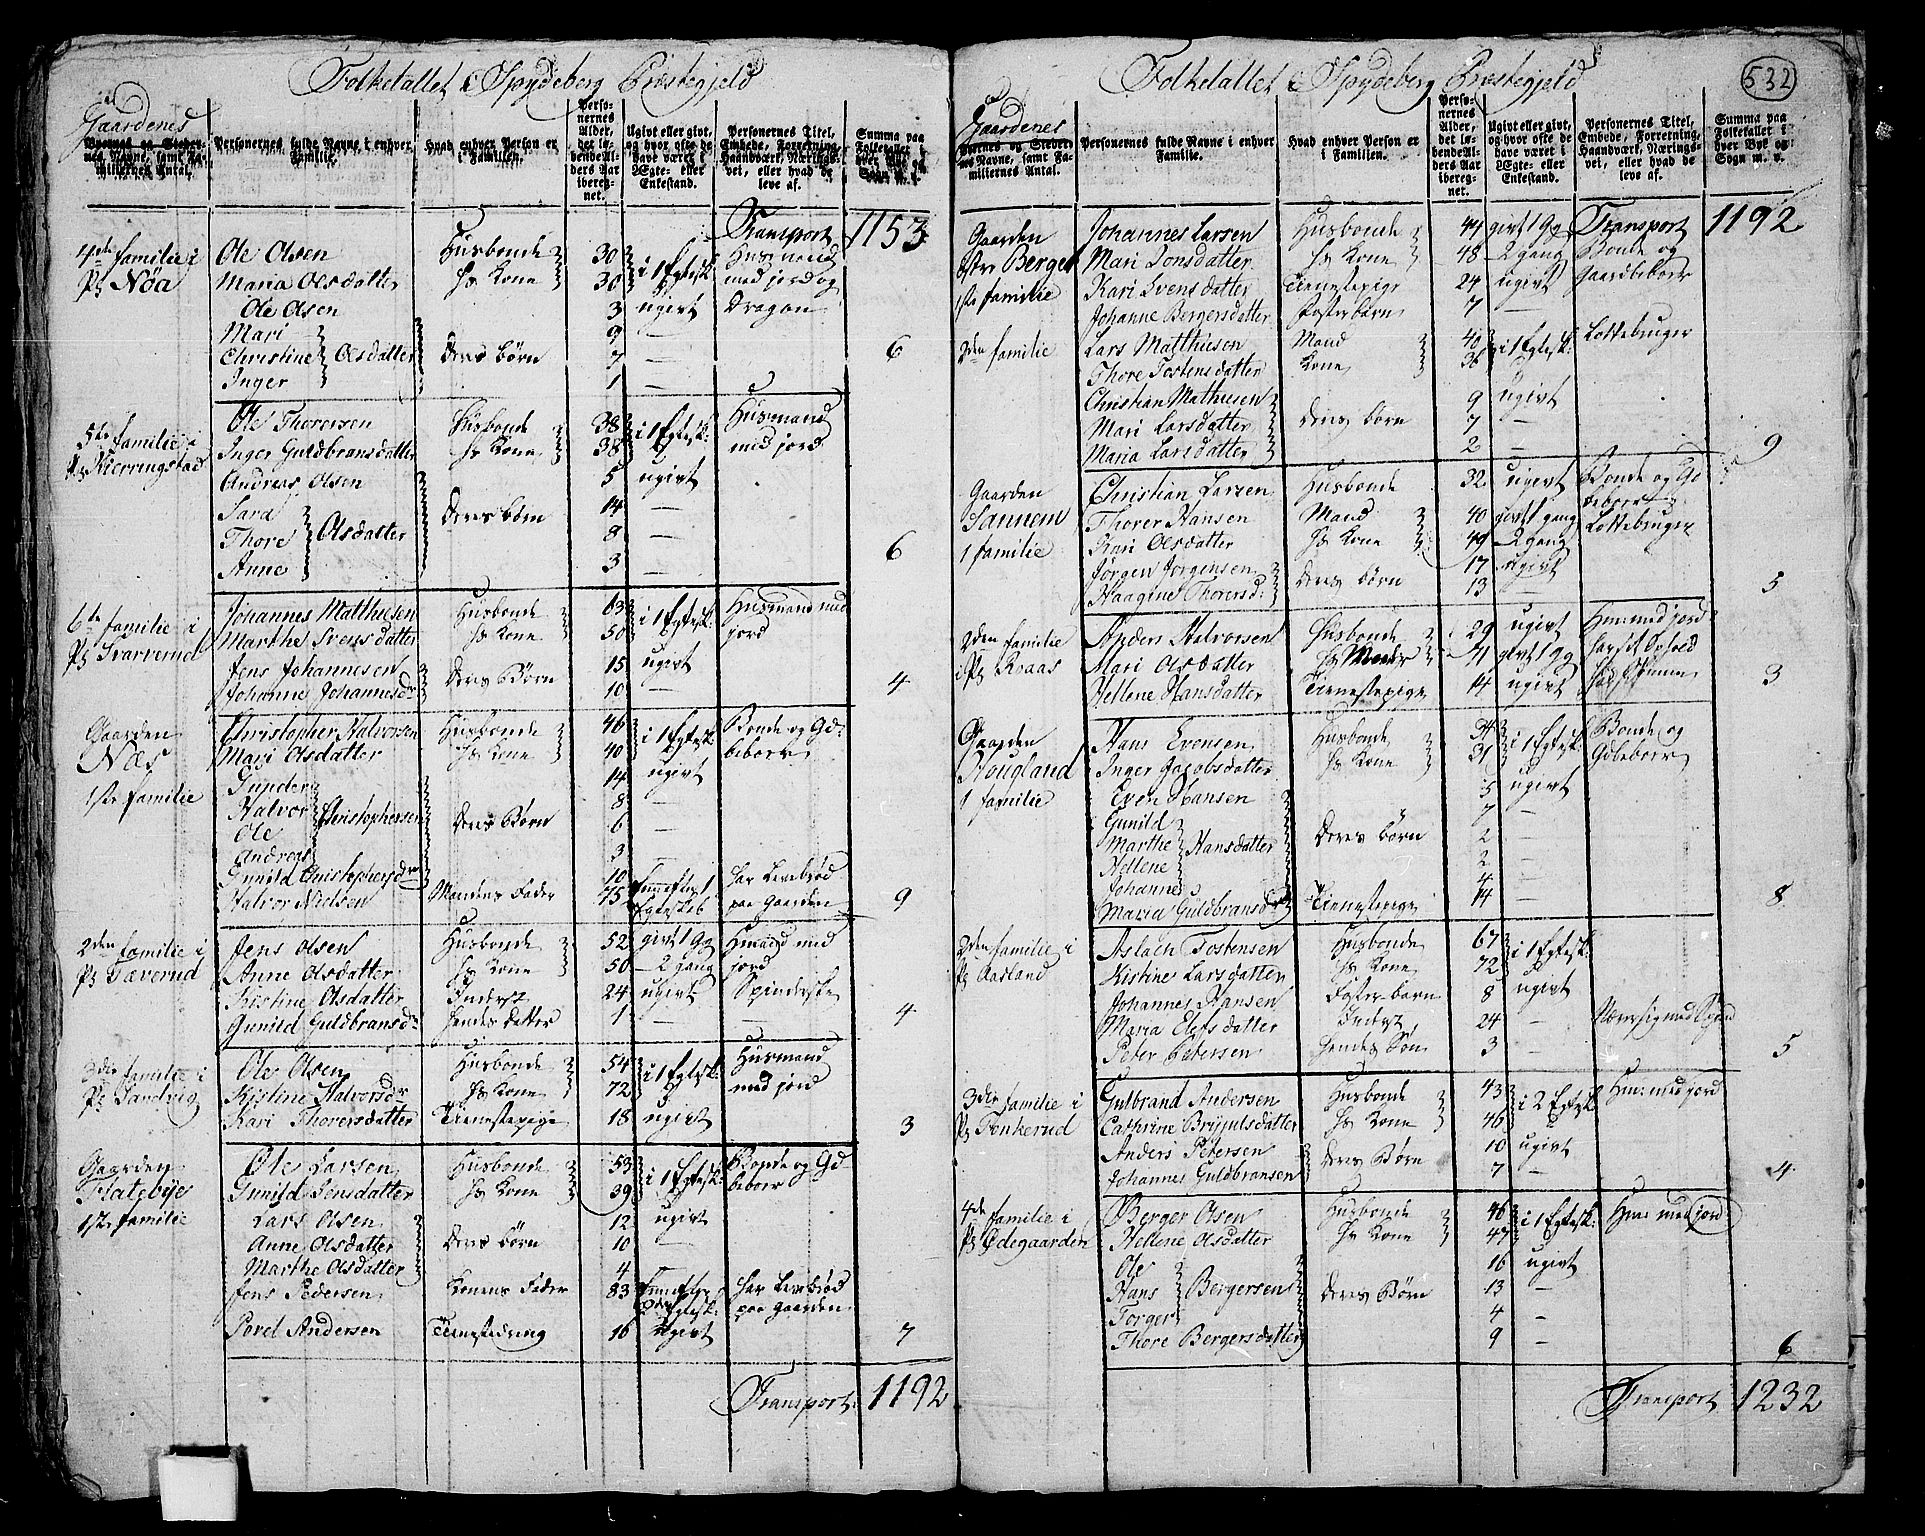 Folketallet i Spydeberg Præstegjeld
Gaardenes
Byernes og Stedernes Navne, samt Familiernes Antal.
Personernes fulde Navne i enhver Familie.
Hvad enhver Person er i Familien.
Personernes Alder, det løbende Alders Aar iberegnet.
Ugivt eller givt, og hvor ofte de have været i Ægte- eller Enkestand.
Personernes Titel, Embede, Forretning, Haandværk, Næringsvei, eller hvad de leve af.
Summa paa Folketallet i hver Bye og Sogn m. v.
Transport 1153
4de familie i Ole Olsen Huusbonde 30 i 1 Egtesk: Husmand
Pl Nöa Maria Olsdatter Hs Kone 30 med jord og
Ole Olsen 3 ugivt Dragon
Mari 9 —
Christine Olsdatter Deres börn 7 — 6
Inger 1 —
5te familie i Ole Thoresen Husbonde 38 i 1 Egtesk: Husmand
Pl Kierringstad Inger Guldbransdatter Hs Kone 38 med jord
Andreas Olsen 5 ugivt
Sara 14 —
Thore Olsdatter Deres börn 8 — 6
Anne 3 —
6te familie i Johannes Matthiesen Husbonde 63 i 1 Egtesk: Husmand med
Pl Svarverud Marthe Svensdatter Hs Kone 50 jord
Jens Johannesen Deres Börn 15 ugivt
Johanne Johannesdr 10 — 4
Gaarden Christopher Halvorsen Husbonde 46 i 1 Egtesk: Bonde og Gd:
Næs Mari Olsdatter Hs Kone 40 beboer
1ste familie Gunder 14 ugivt
Halvor Christophersen Deres Börn 8 —
Ole 6 —
Andreas 3
Gunild Christophersdr 10
Halvor Nielsen Mandens Fader 75 Egteskab har Levebröd paa Gaarden 9
2den familie i Jens Olsen Husbonde 52 givt 1 Gg Hmand med
Pl Tæverud Anne Olsdatter Hs Kone 50 — 2 gang jord
Kistine Olsdatter Inderst 24 ugivt Spinderske
Gunild Guldbransdr hendes datter 1 — 4
3die familie i Ole Olsen Husbonde 54 i 1 Egtesk: Husmand
Pl Sandvig Kistine Halvorsdr Hs Kone 72 med jord
Kari Thoversdatter Tienestepige 18 ugivt 3
Gaarden Ole Larsen Husbonde 53 i 1 Egtesk: Bonde og Gd
Flatebye Gunild Jensdatter Hs Kone 39 beboer
1ste familie Lars Olsen 12 ugivt
Anne Olsdatter Deres börn 10 —
Marthe Olsdatter 4
Jens Pedersen Konens Fader 83 Egtesk: har Levebröd paa Gaarden
Povel Andersen Tienestedreng 16 ugivt 7
Transport 1192
532
Folketallet i Spydeberg Præstegjeld
Gaardenes
Byernes og Stedernes Navne, samt Familiernes Antal.
Personernes fulde Navne i enhver Familie.
Hvad enhver Person er i Familien.
Personernes Alder, det løbende Alders Aar iberegnet.
Ugivt eller givt, og hvor ofte de have været i Ægte- eller Enkestand.
Personernes Titel, Embede, Forretning, Haandværk, Næringsvei, eller hvad de leve af.
Summa paa Folketallet i hver Bye og Sogn m. v.
Transport 1192
Gaarden Johannes Larsen Husbonde 44 givt 1 Gg Bonde og
östre Berger Mari Jonsdatter Hs Kone 48 — 2 gang Gaardbeboer
1ste familie Kari Svensdatter Tienestepige 24 ugivt
Johanne Bergersdatter Fosterbarn 7 —
2den familie Lars Matthiesen Mand 40 i 1 Egtesk: Lottebruger
Thore Tostensdatter Kone 36
Christian Mathiesen 9 ugivt
Mari Larsdatter Deres börn 7 —
Maria Larsdatter 2 — 9
Gaarden Christian Larsen Husbonde 32 ugivt Bonde og Gd beboer
Sannem Thorer Hansen Mand 40 givt 1 gang Lottebruger
1 familie Kari Olsdatter Hs Kone 49 — 2 gang
Jörgen Jorgensen Deres börn 17 ugivt
Haagine Thorersd: 13 — 5
2den familie Anders Halvorsen Husbonde 29 ugivt Hm: med jord
i Pl Kraas Mari Olsdatter Hs Moder 71 givt 1 Gg
Hellene Hansdatter Tienestepige 14 ugivt 3
Gaarden Hans Evensen Husbonde 34 i 1 Egtesk: Bonde og
Hougland Inger Jacobsdatter Hs Kone 31 Gdbeboer
1 familie Even Hansen 5 ugivt
Gunild 7
Marthe Hansdatter Deres börn 2 —
Hellene 2 —
Johanne 4 —
Maria Guldbransdr Tienestepige 14 — 8
2den familie i Aslach Tostensen Husbonde 67 i 1 Egtesk:
Pl Aasland Kistine Larsdatter Hs Kone 72
Johannes Hansen Foster-barn 8 ugivt
Maria Elefsdatter Inderst 24 — Nærer sig med Spind
Peter Petersen Hendes Sön 3 — 5
3die familie i Gulbrand Andersen Husbonde 43 i 2 Egtesk Hm: med jord
Pl Fenkerud Cathrine Brynjulsdatter Hs Kone 46
Anders Petersen Deres Börn 10 ugivt
Johannes Guldbransen 7 — 4
4de familie i Berger Olsen Husbonde 46 i 1 Egtesk: Hm: med jord
Pl Ödegaarden Hellene Olsdatter Hs Kone 47
Ole 16 ugivt
Hans Bergersen Deres Börn 13 —
Torger 4 —
Thore Bergersdatter 9 — 6
Transport 1232